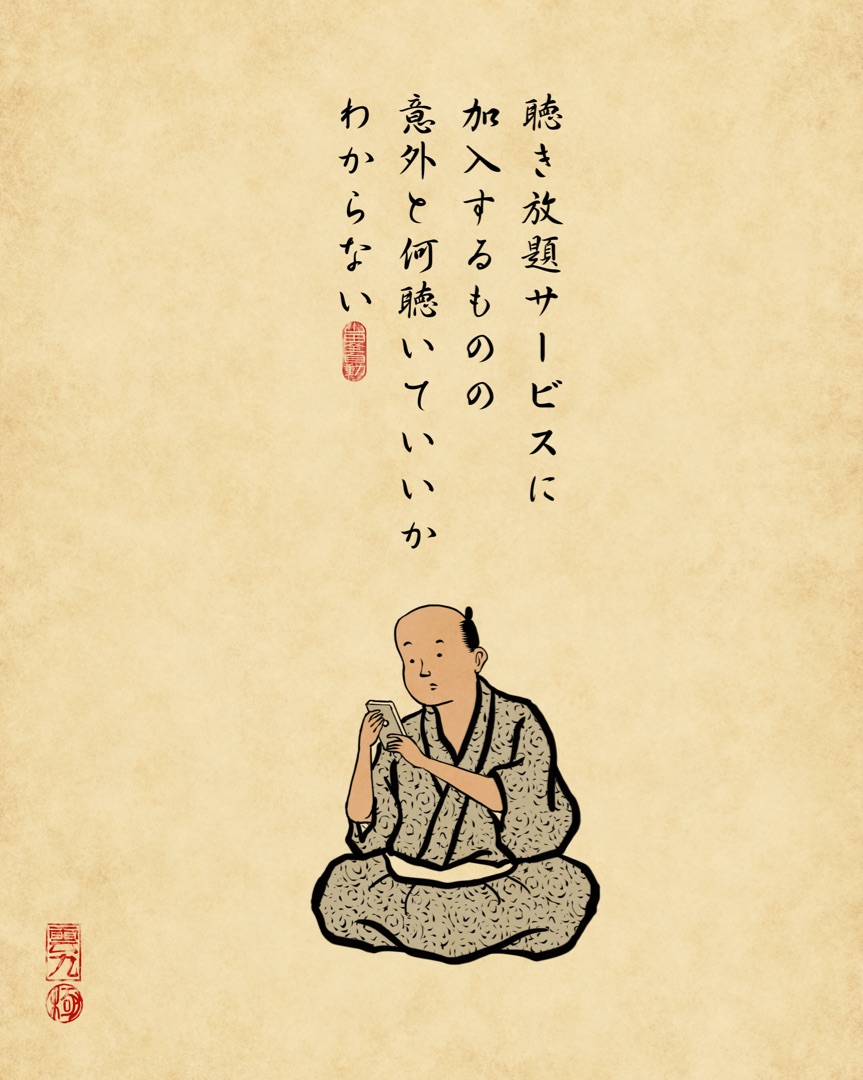 聴き放題サービスに
加入するものの
意外と何聴いていいか
わからない